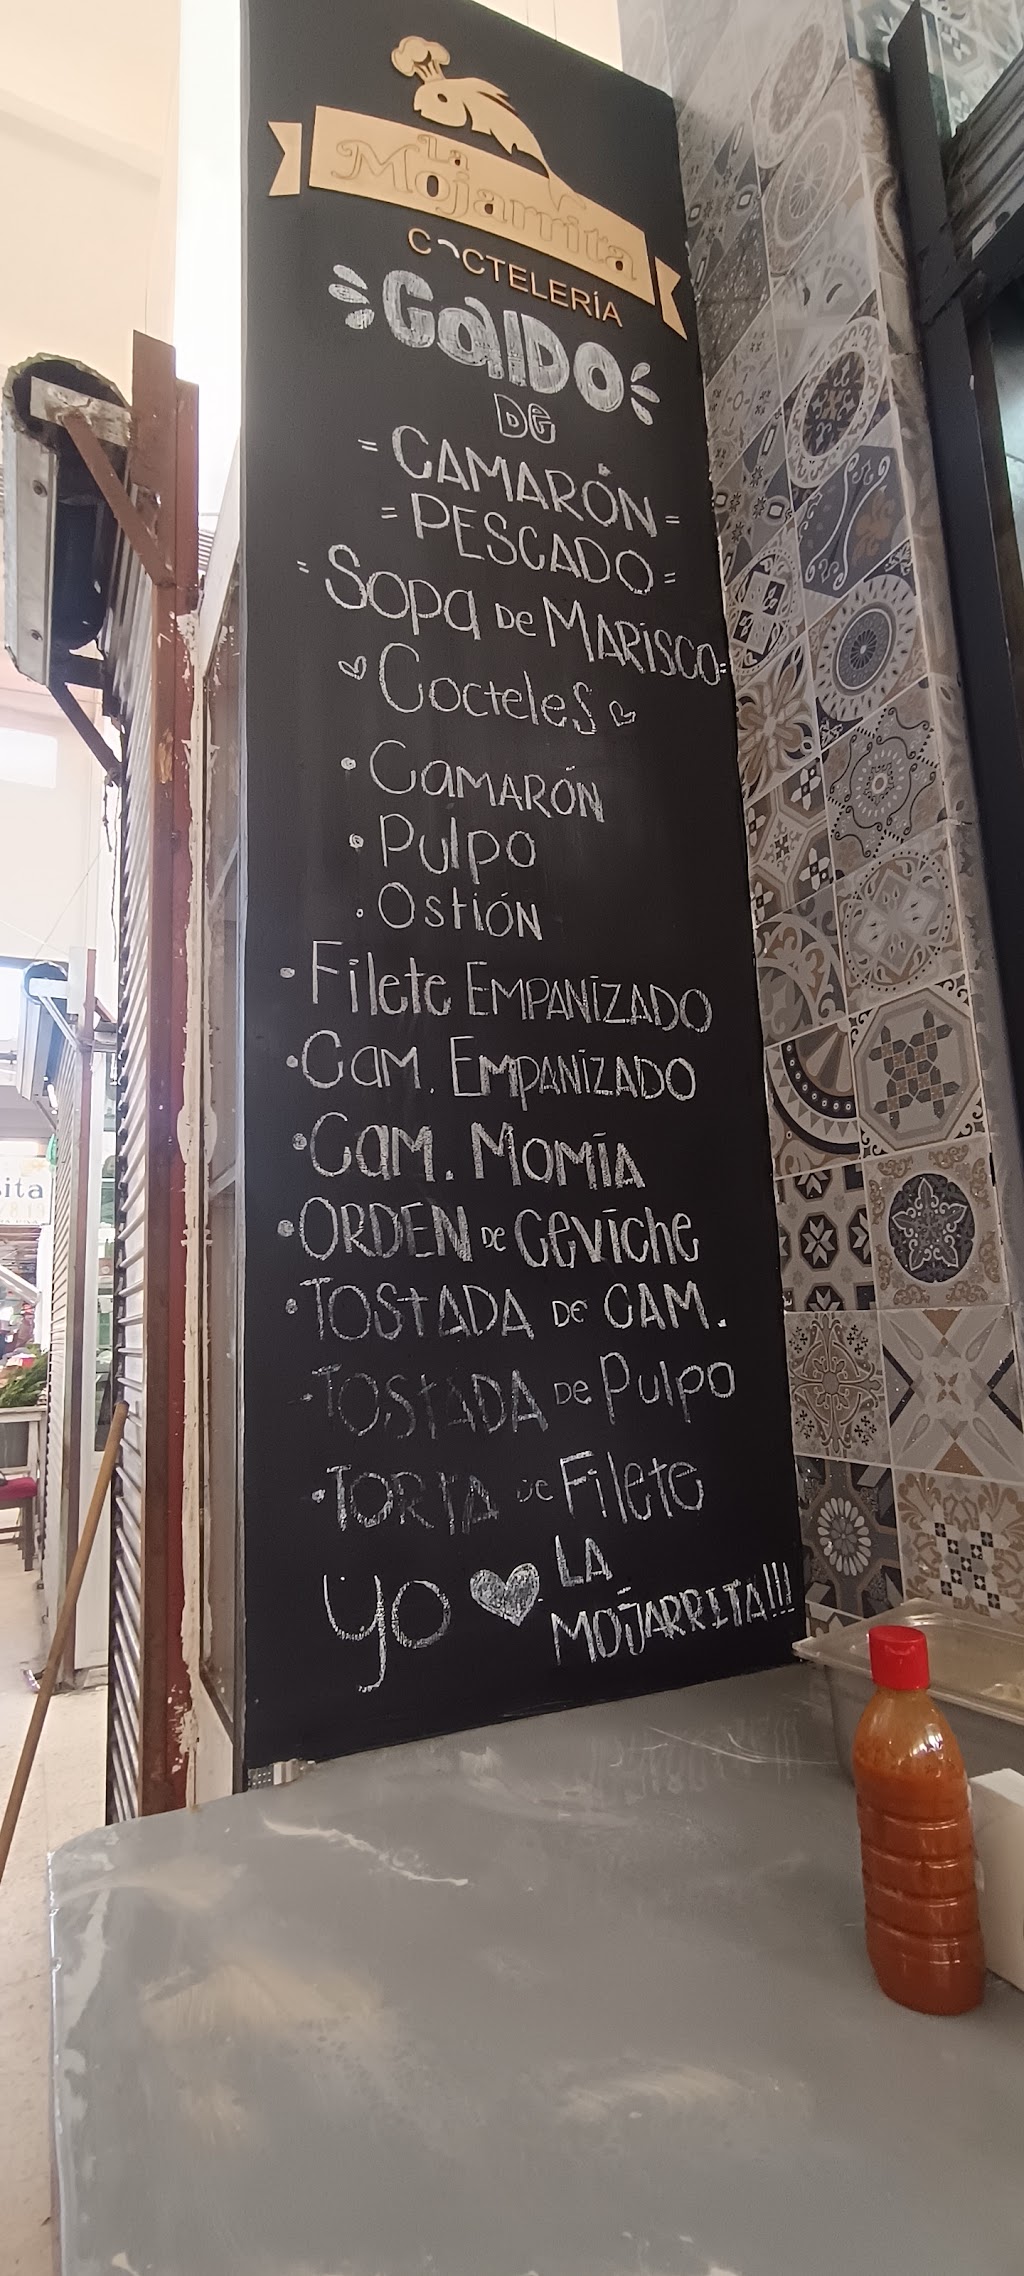 La
Mojarrita
COCTELERÍA
CALDO
DE
= CAMARÓN =
= PESCADO =
= Sopa de MARISCO =
Cocteles
• CAMARÓN
• Pulpo
• Ostión
• Filete EMPANIZADO
• Cam. EMPANIZADO
• Cam. MOMIA
• ORDEN de Ceviche
• TOSTADA DE CAM.
- TOSTADA DE Pulpo
• TORTA DE Filete
yo ♥ LA
MOJARRITA!!!
sita